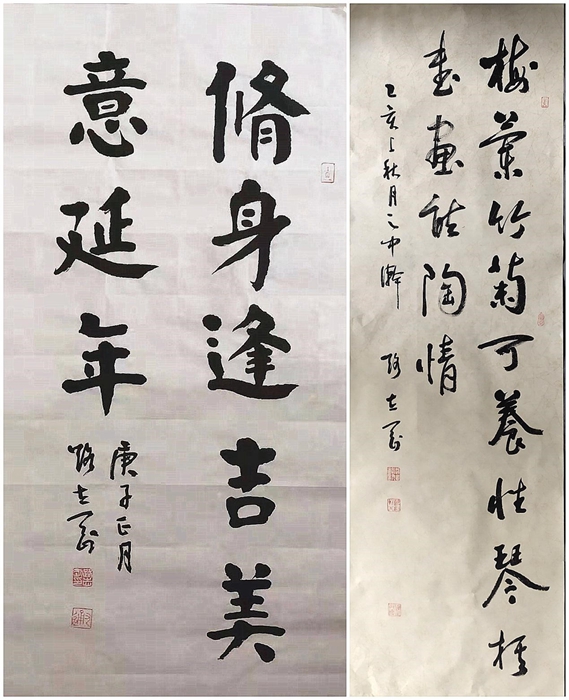 脩身逢吉美
意延年
庚子正月
路
梅蘭竹菊可養性琴棋
書畫能陶情
乙亥上秋月之中澣 路